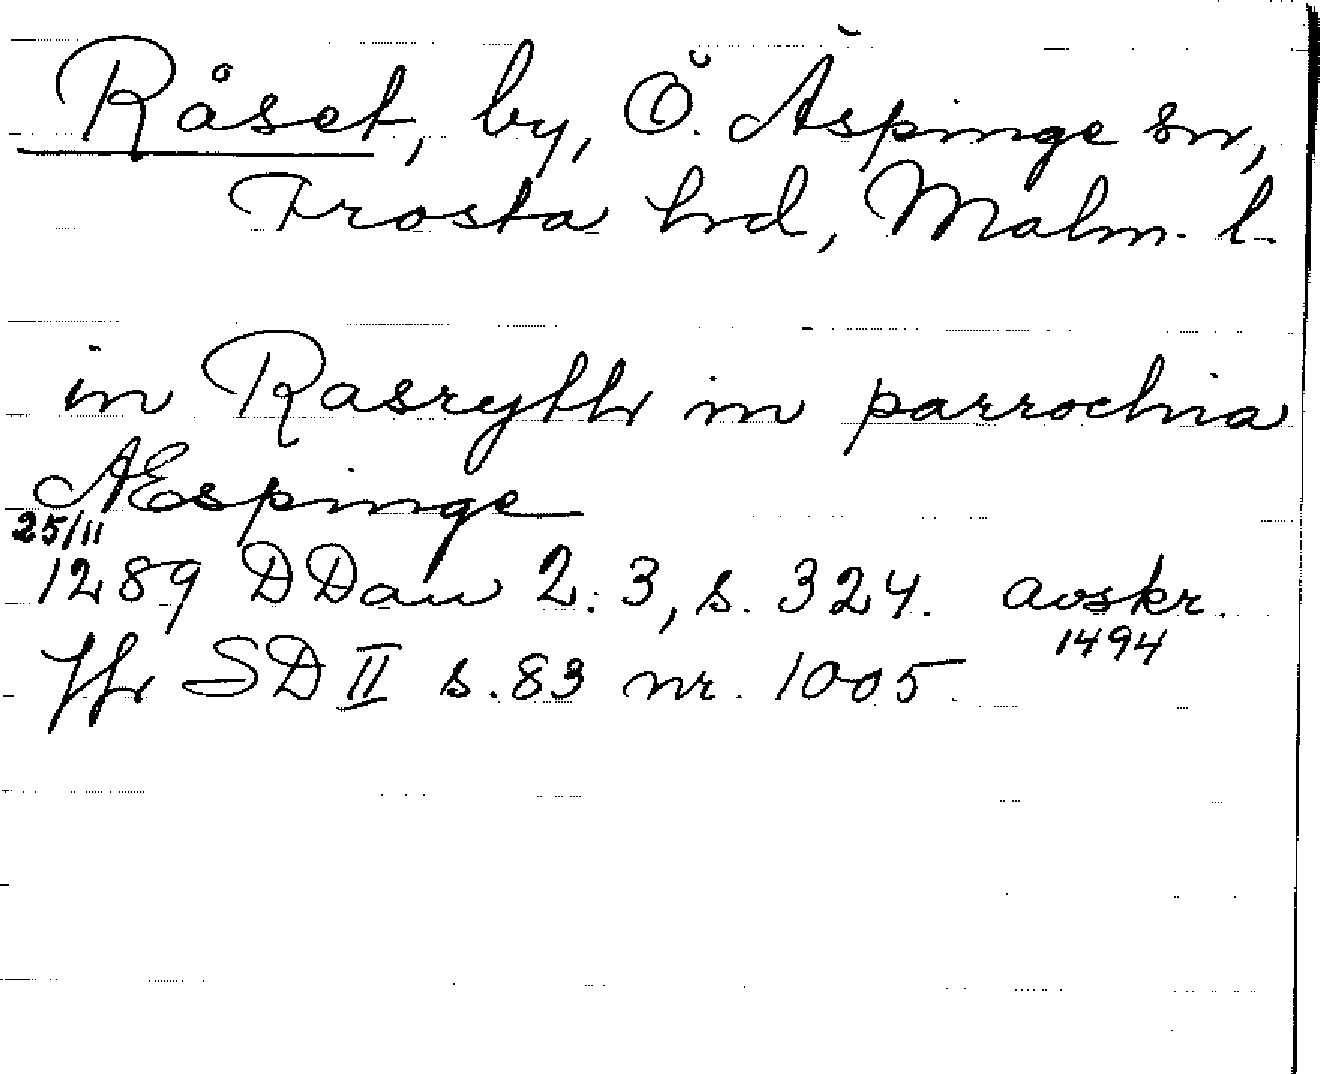 Råset, by, Ö. Äspinge sn,
Frosta hrd, Malm. l.
in Rasrythh in parrochia
AEspinge
25/11
1289 DDan 2:3, s. 324. avskr.
1494
Jfr SD II s. 83 nr. 1005.